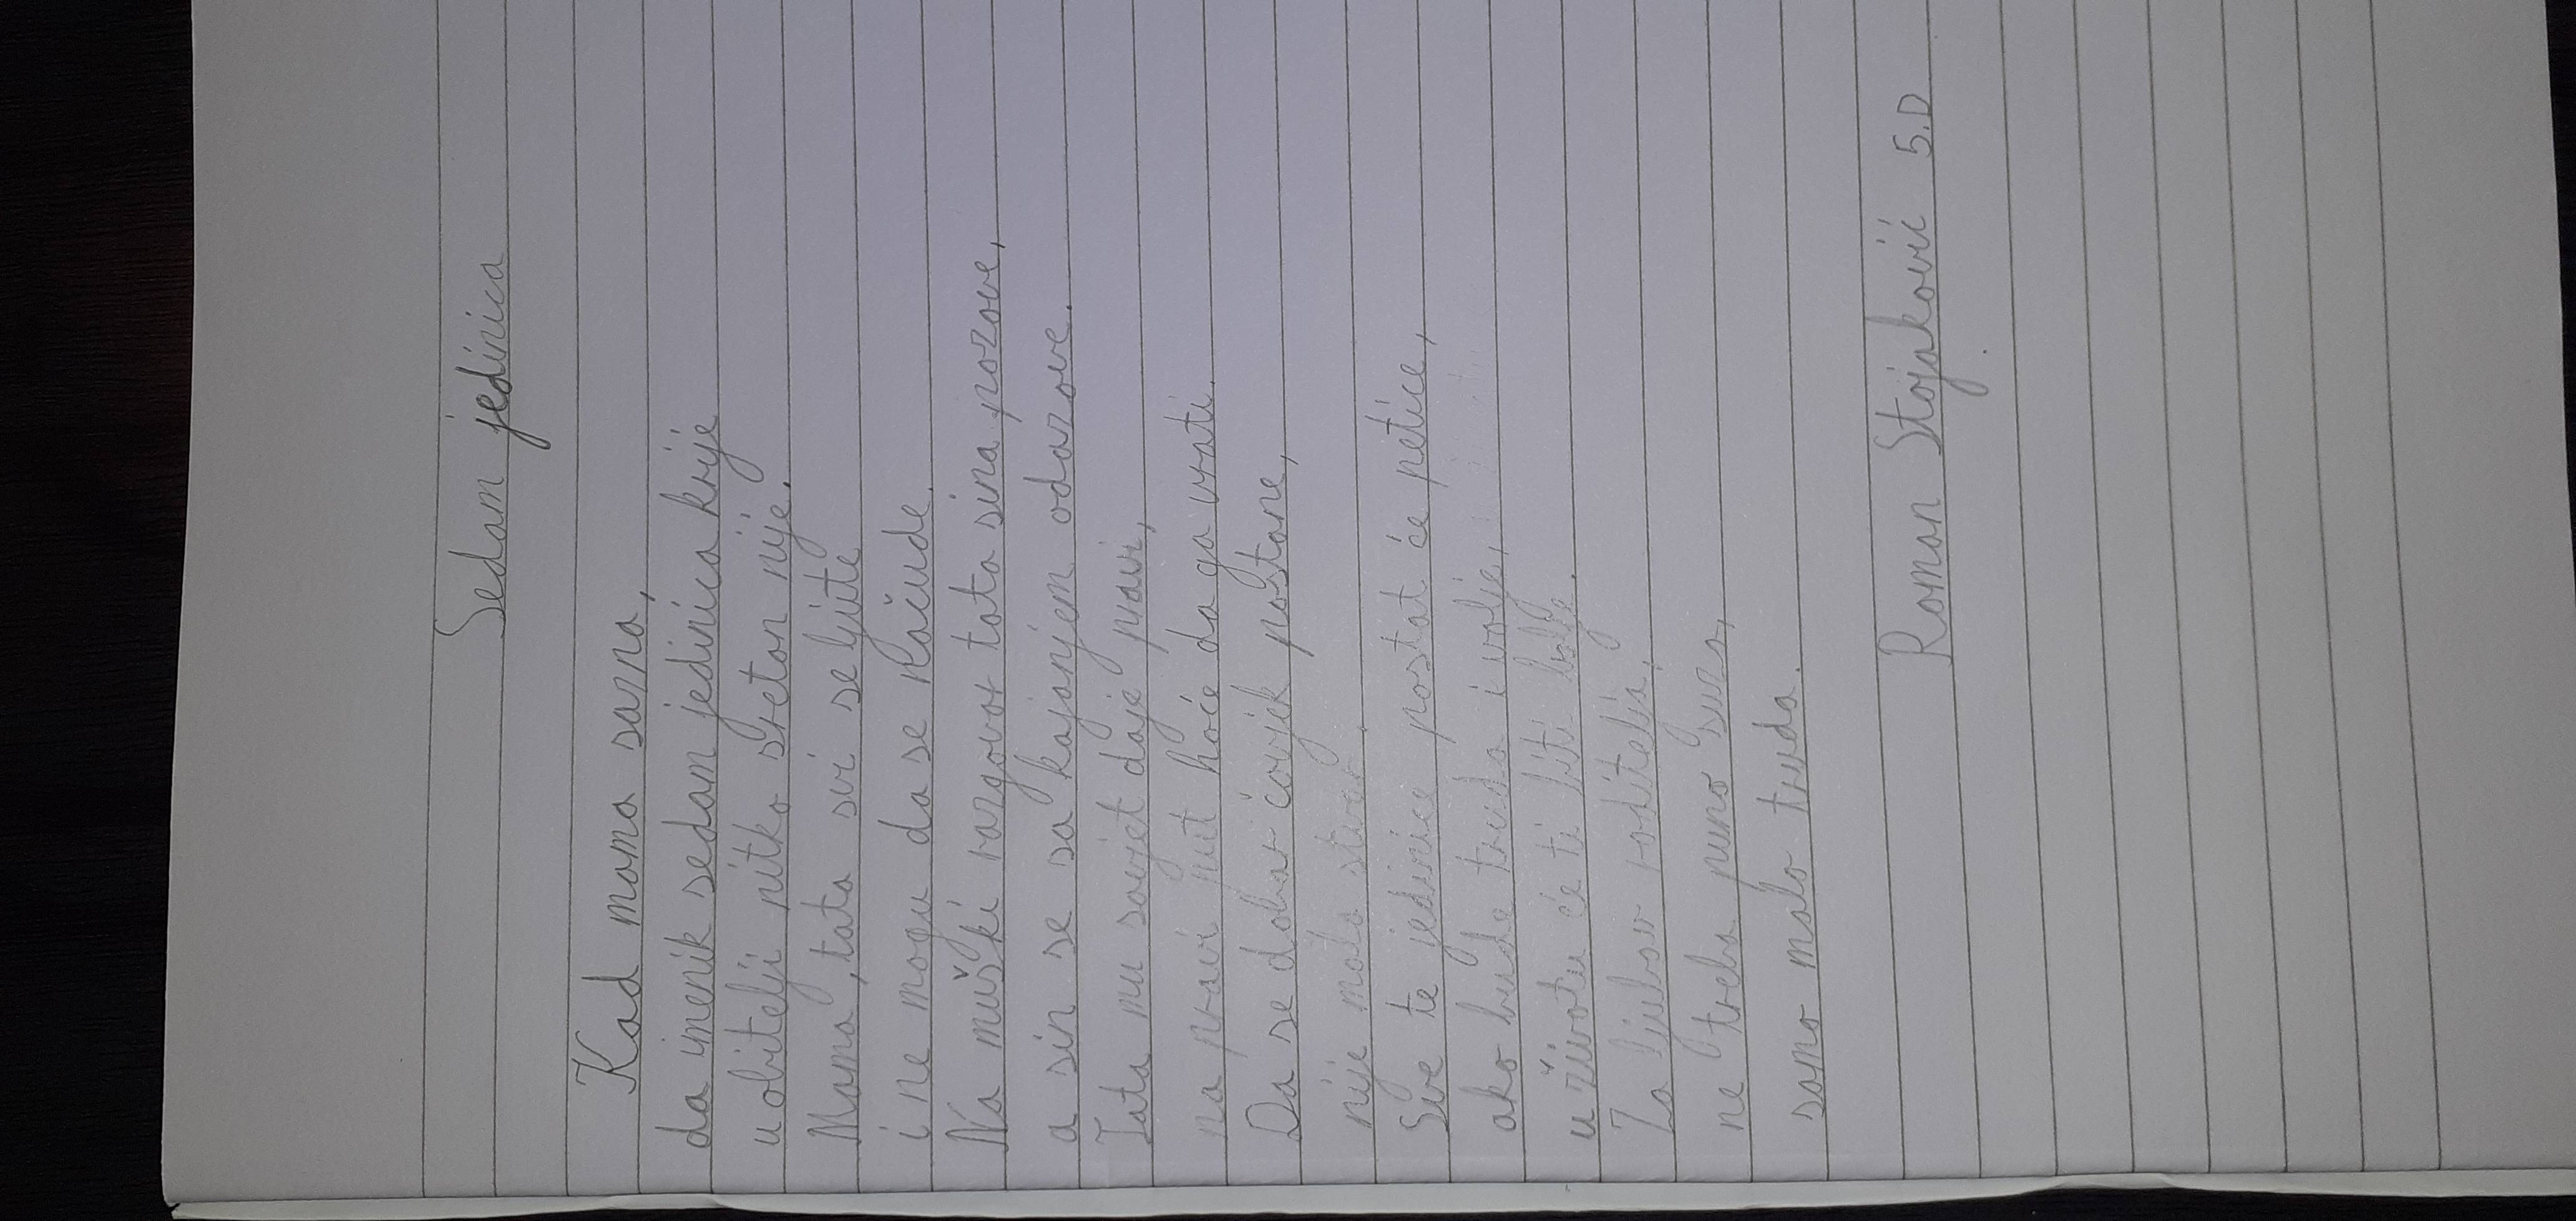 Sedam jedinica
Kad mama sazna,
da imenik sedam jedinica krije
u obitelji nitko sretan nije.
Mama, tata svi se ljute
i ne mogu da se načude.
Na muški razgovor tata sina pozove,
a sin se sa kajanjem odazove.
Tata mu savjet daje pravi,
na pravi put hoće da ga vrati.
Da se dobar čovjek postane,
nije mala stvar.
Sve te jedinice postat će petice,
ako bude truda i volje,
u životu će ti biti bolje.
Za ljubav roditelja,
ne treba puno suza,
samo malo truda.
Roman Stojaković 5.D